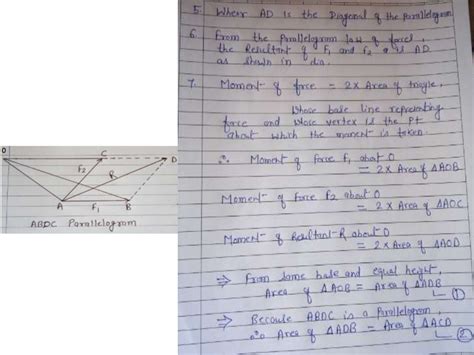 5. Where AD is the Diagonal of the Parallelogram
6. From the Parallelogram law of force,
the Resultant of F1 and F2 is AD
as shown in dia.
7. Moment of force = 2 x Area of triangle,
whose base line representing
force and whose vertex is the Pt
about which the moment is taken.
∴ Moment of Force F1 about O
= 2 x Area of ΔAOB
Moment of force F2 about O
= 2 x Area of ΔAOC
Moment of Resultant-R about O
= 2 x Area of ΔAOD
⇒ From Same base and equal height,
Area of ΔAOB = Area of ΔADB
①
⇒ Because ABDC is a Parallelogram,
∴ Area of ΔADB = Area of ΔACD
②
O C D
F2 R
A F1 B
ABDC Parallelogram